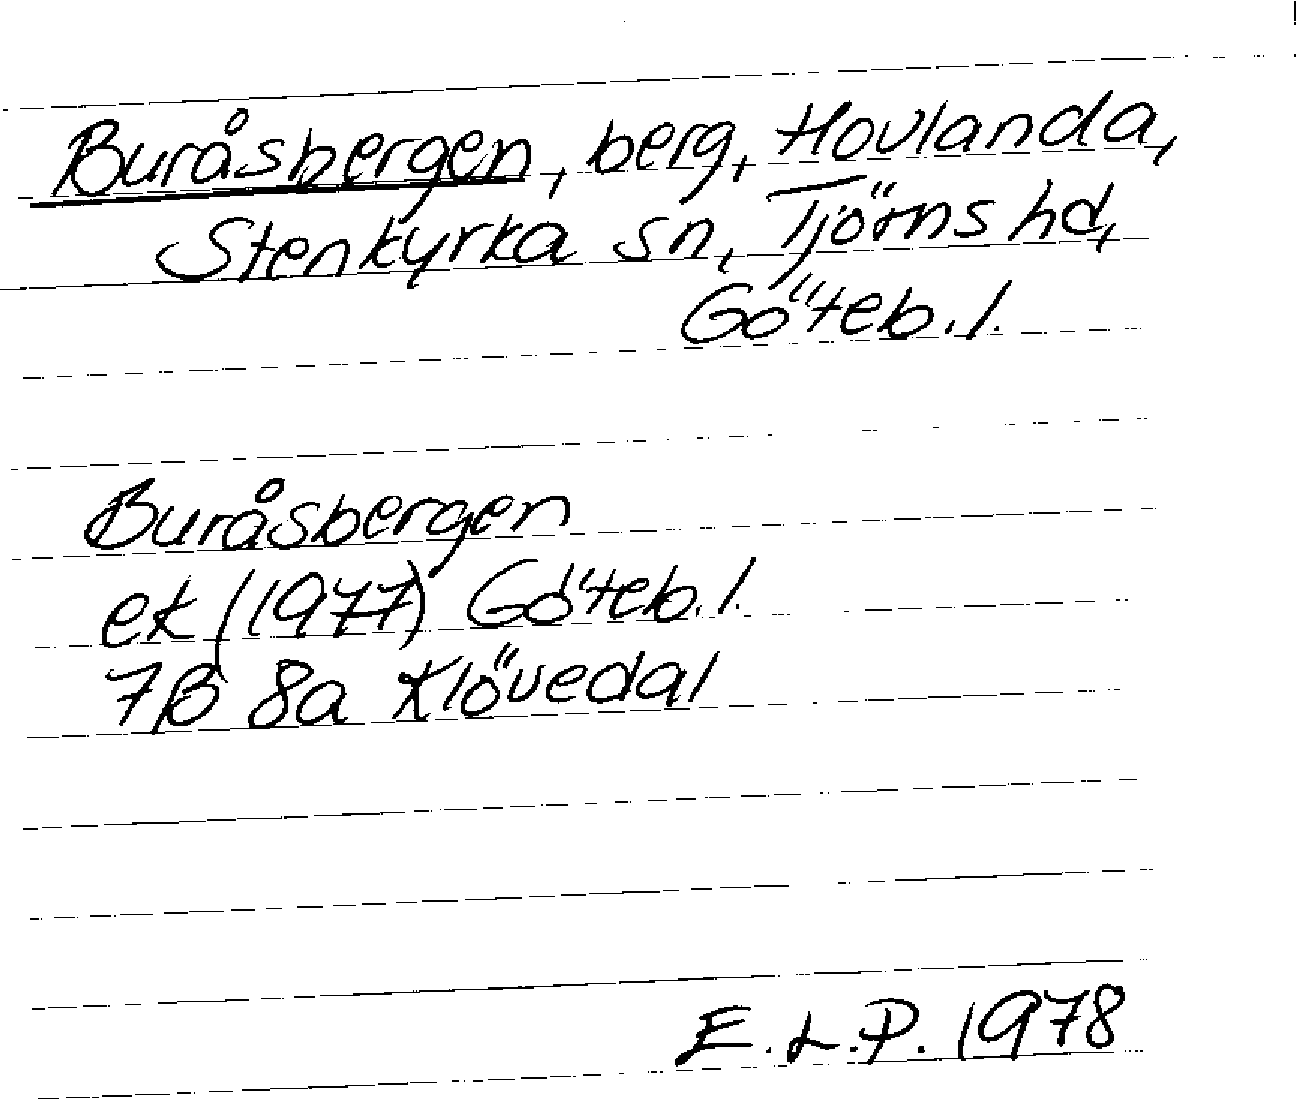 Buråsbergen, berg, Hovlanda,
Stenkyrka sn, Tjörns hd,
Göteb. l.
Buråsbergen
ek (1977) Göteb. l.
7B 8a Klövedal
E. L. P. 1978